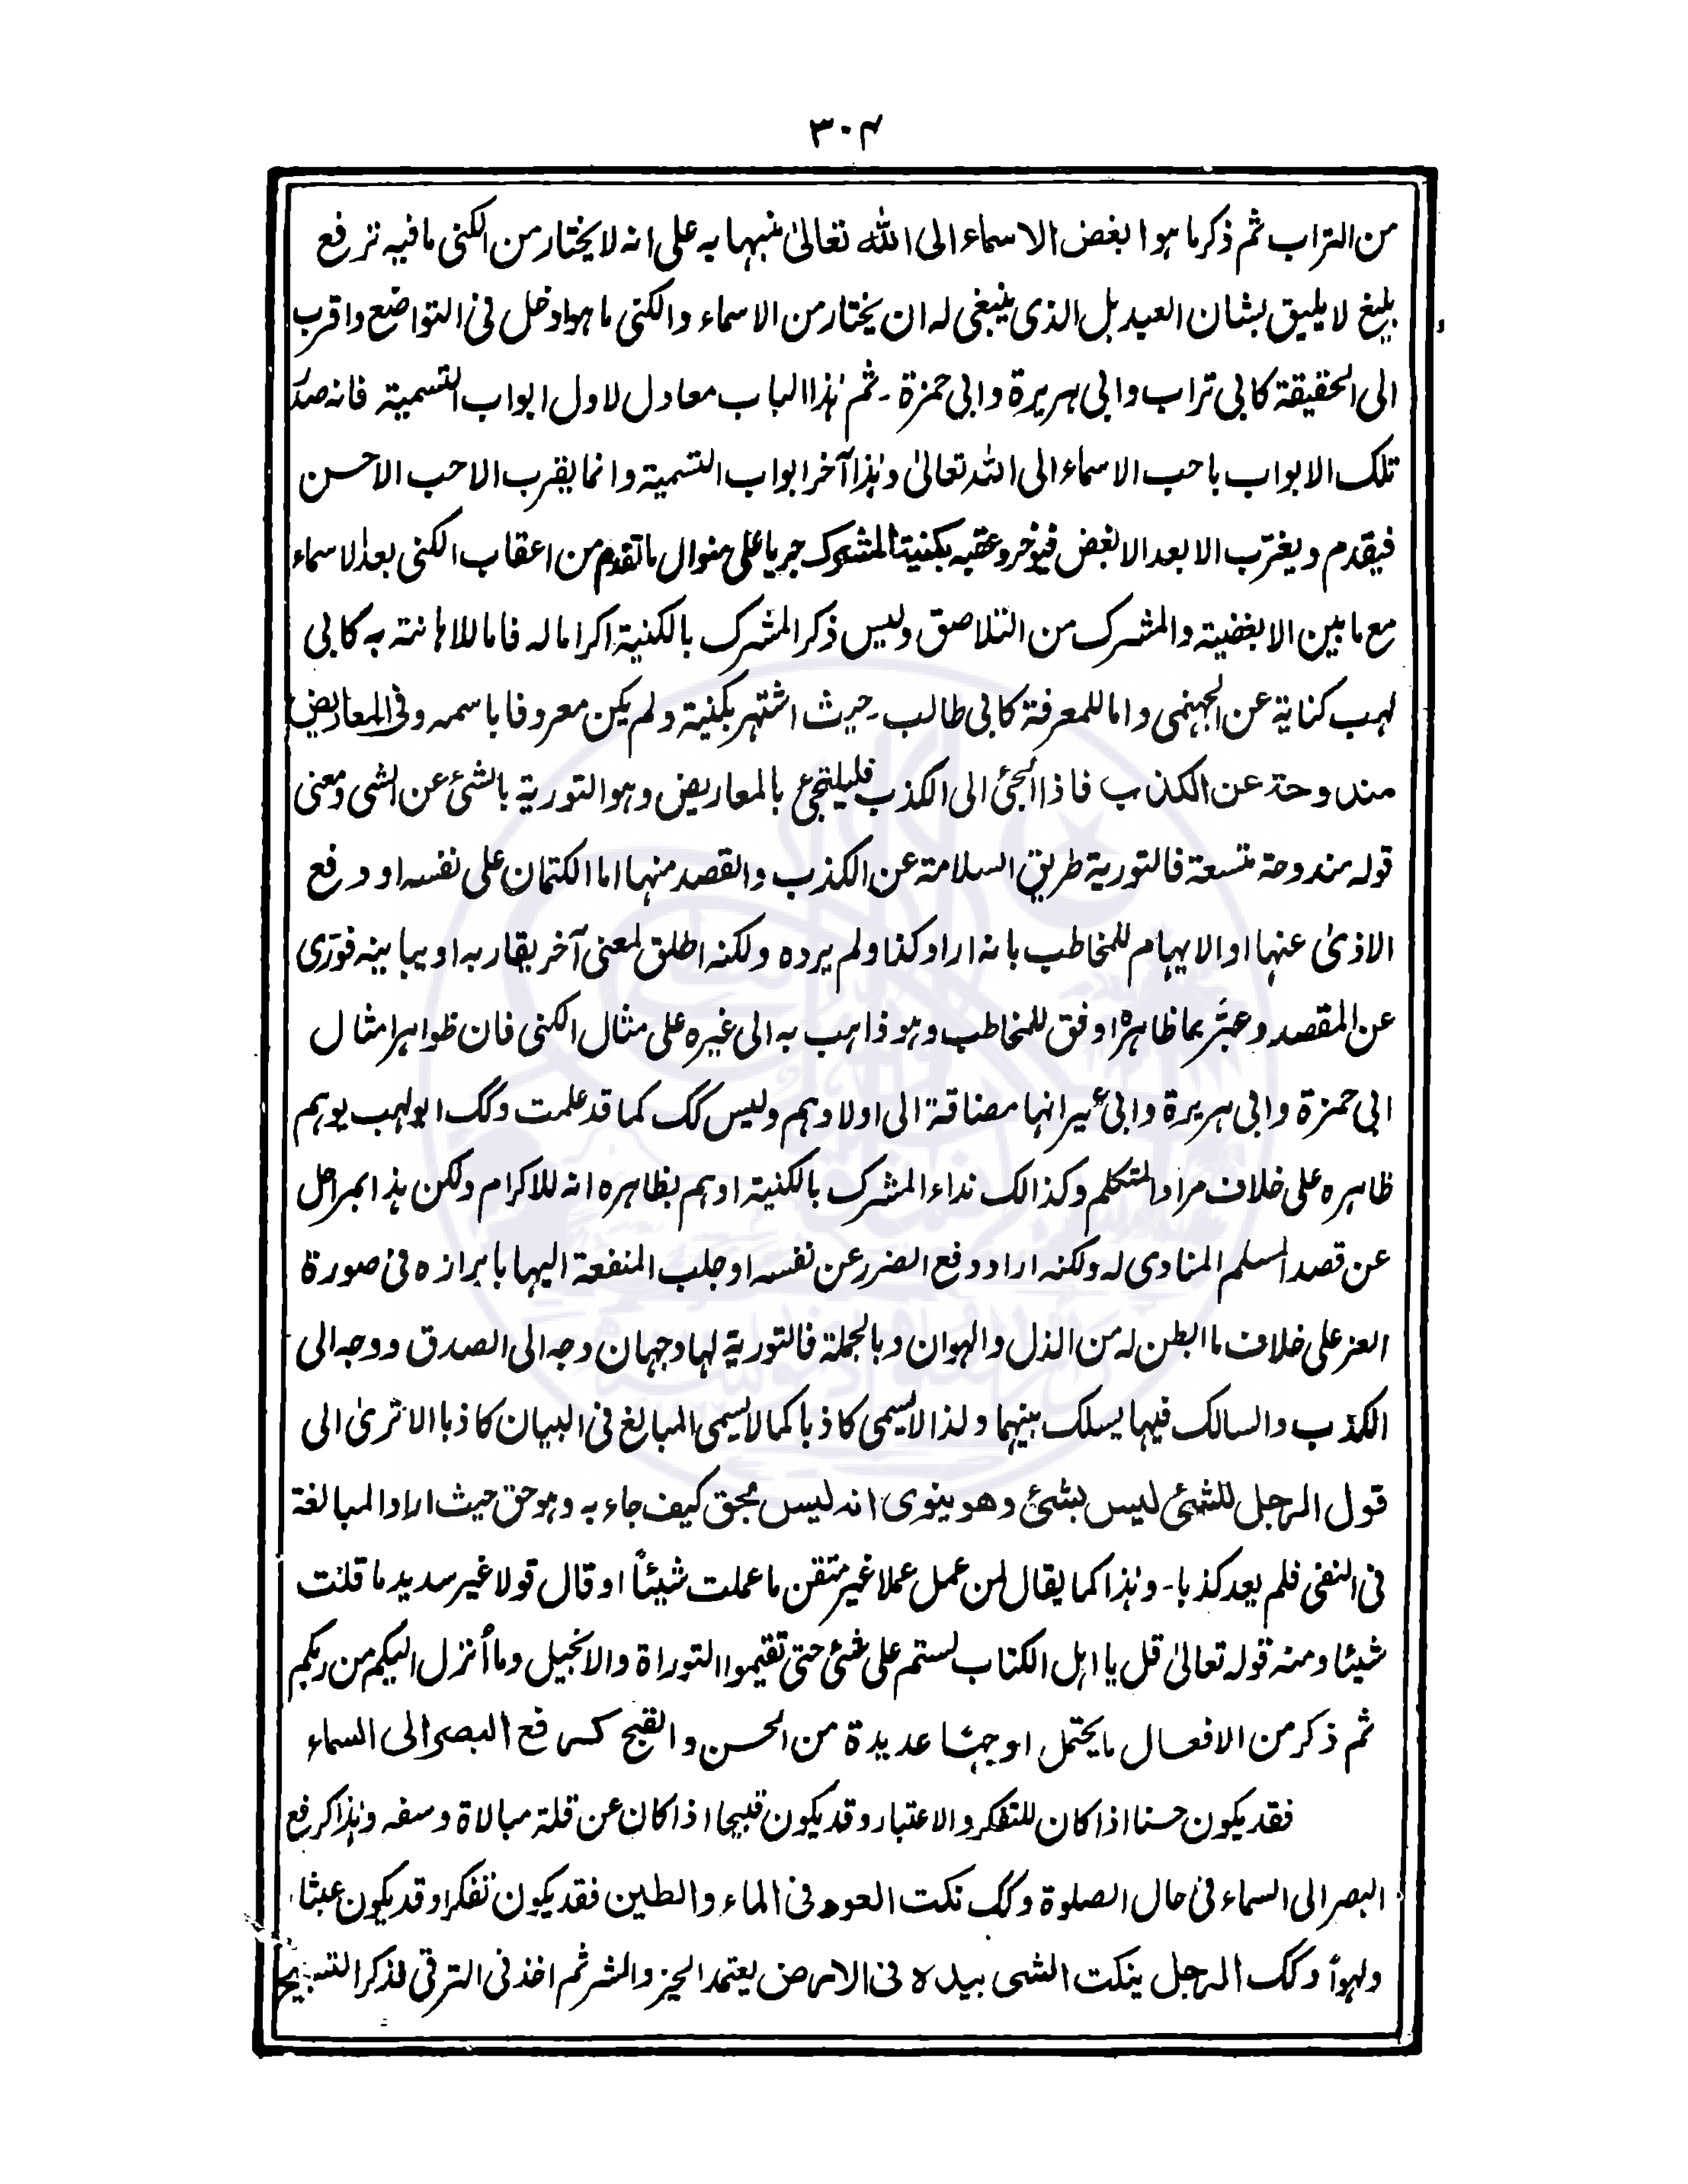 ۳۰۴
من التراب ثم ذكر ما هو ابغض الاسماء الى الله تعالىٰ منبها به على انه لا يختار من الكنى ما فيه ترفع
بليغ لا يليق بشان العبد بل الذى ينبغى له ان يختار من الاسماء والكنى ما هو ادخل فى التواضع واقرب
الى الحقيقة كابى تراب وابى هريرة وابى حمزة ـ ثم هٰذا الباب معادل لاول ابواب التسمية فانه صدّر
تلك الابواب باحب الاسماء الى الله تعالىٰ وهٰذا آخر ابواب التسمية وانما يقرب الاحب الاحسن
فيقدم ويغرّب الابعد الابغض فيوخر وعقبه بكنية المشرك جريا على منوال ما تقدم من اعقاب الكنى بعد الاسماء
مع ما بين الابغضية والمشرك من التلاصق وليس ذكر المشرك بالكنية اكراما له فاما للاهانته به كابى
لهب كناية عن الجهنمى واما للمعرفة كابى طالب ـ حيث اشتهر بكنية ولم يكن معروفا باسمه وفى المعاريض
مندوحة عن الكذب فاذا ألجئ الى الكذب فليلتجئ بالمعاريض وهو التورية بالشئ عن الشى ومعنى
قوله مندوحة متسعة فالتورية طريق السلامة عن الكذب والقصد منها اما الكتمان على نفسه او دفع
الاذىٰ عنها او الايهام للمخاطب بانه اراد كذا ولم يرده ولكنه اطلق لمعنى آخر يقاربه او يباينه فورّى
عن المقصد وعبّر بما ظاهره اوفق للمخاطب وهو ذاهب به الى غيره على مثال الكنى فان ظواهر امثال
ابى حمزة وابى هريرة وابى عمير انها مضافة الى اولادهم وليس كك كما قد علمت وكك ابو لهب يوهم
ظاهره على خلاف مراد المتكلم وكذالك نداء المشرك بالكنية اوهم بظاهره انه للاكرام ولكن هذا بمراحل
عن قصد المسلم المنادى له ولكنه اراد دفع الضرر عن نفسه او جلب المنفعة اليها بابرازه فى صورة
العز على خلاف ما ابطن له من الذل والهوان وبالجملة فالتورية لها وجهان وجه الى الصدق ووجه الى
الكذب والسالك فيها يسلك بينهما ولذا لا يسمى كاذبا كما لا يسمى المبالغ فى البيان كاذبا الا ترىٰ الى
قول الرجل للشئ ليس بشئ وهو ينوى انه ليس بحق كيف جاء به وهو حق حيث اراد المبالغة
فى النفى فلم يعد كذبا ـ وهٰذا كما يقال لمن عمل عملا غير متقن ما عملت شيئاً او قال قولا غير سديد ما قلت
شيئا ومنه قوله تعالىٰ قل يا اهل الكتاب لستم على شئ حتى تقيموا التوراة والانجيل وما أنزل اليكم من ربكم
ثم ذكر من الافعال ما يحتمل اوجها عديدة من الحسن والقبح كرفع البصر الى السماء
فقد يكون حسنا اذا كان للتفكر والاعتبار وقد يكون قبيحا اذا كان عن قلة مبالاة وسفه وهٰذا كرفع
البصر الى السماء فى حال الصلوة وكك نكت العود فى الماء والطين فقد يكون تفكرا وقد يكون عبثا
ولهواً وكك الرجل ينكت الشى بيده فى الارض يعتمد الخير والشر ثم اخذ فى الترقى لذكر التسبيح